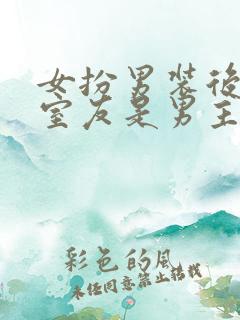 女扮男装后
室友是男主
彩色的风
未经同意禁止转载